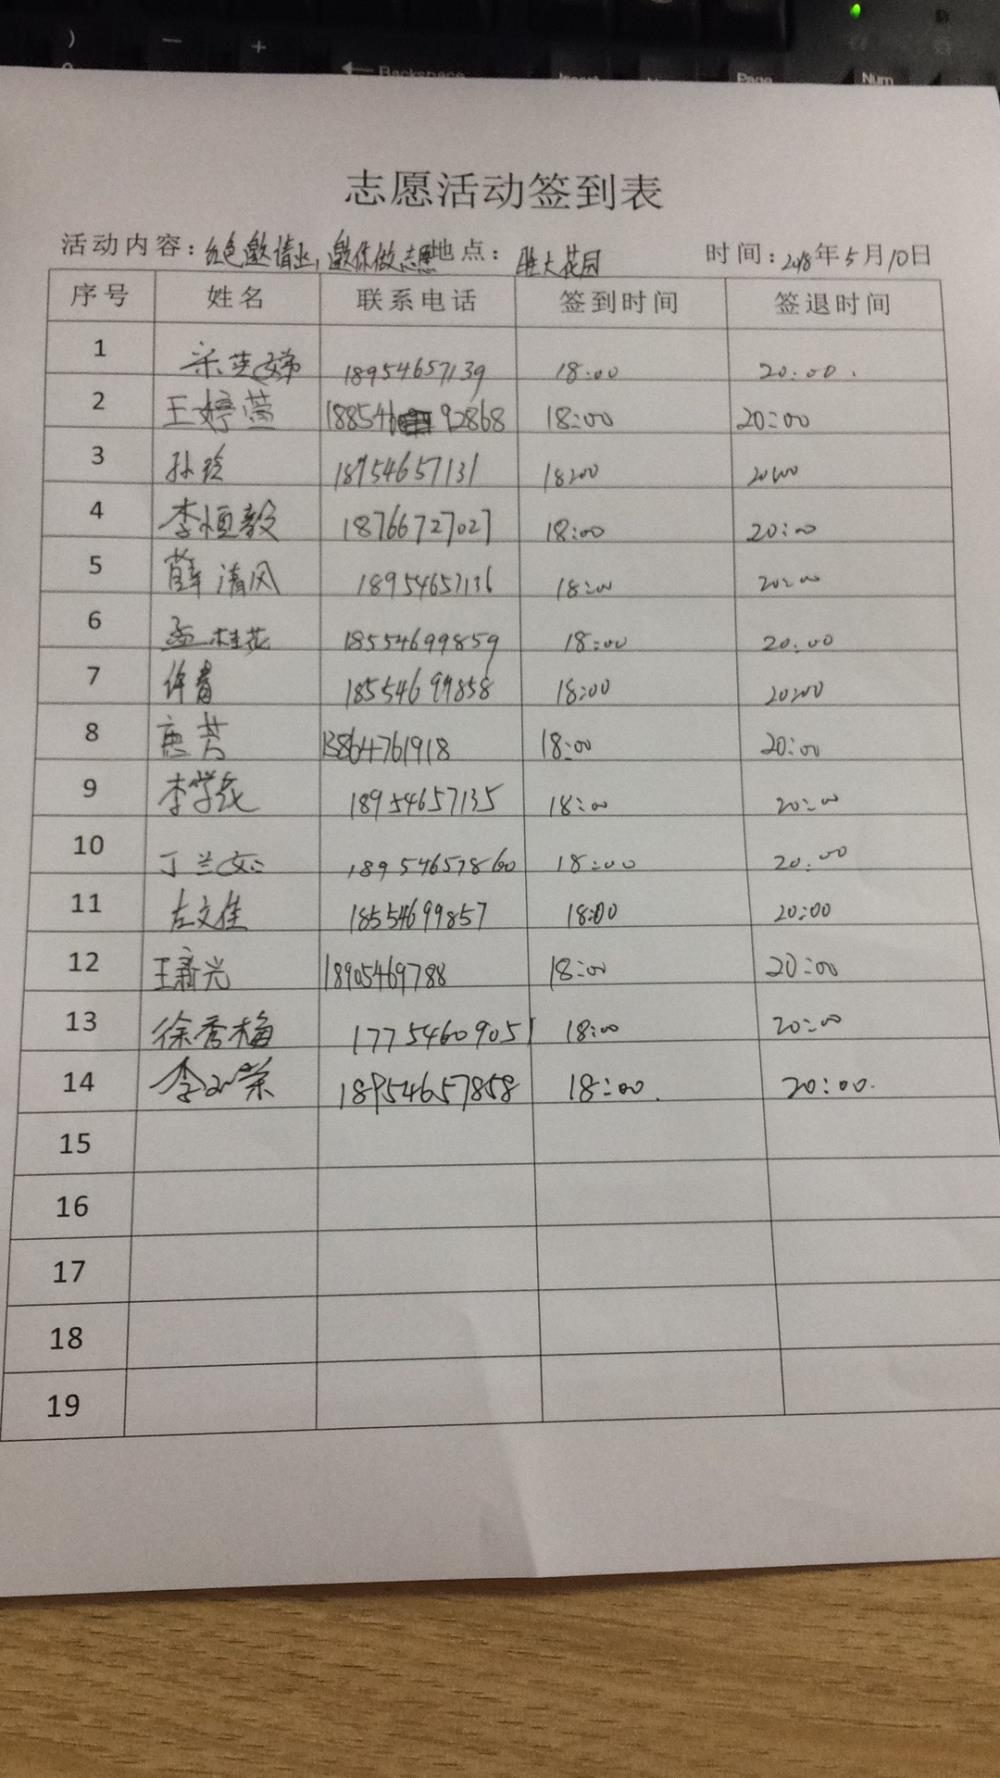 Backspace
Page
Num
志愿活动签到表
活动内容：红色邀请函，邀你做志愿 地点：胜大花园 时间：2018年5月10日
序号 姓名 联系电话 签到时间 签退时间
1 18954657139 18:00 20:00.
2 王婷 1885469 2868 18:00 20:00
3 孙玲 18954657131 18:00 20:00
4 李恒毅 18766727027 18:00 20:00
5 薛清风 18954657136 18:00 20:00
6 孟桂花 18554699859 18:00 20:00
7 许青 18554699858 18:00 20:00
8 唐芳 13864761918 18:00 20:00
9 李学 18954657135 18:00 20:00
10 丁兰 18954657860 18:00 20:00
11 左文佳 18554699857 18:00 20:00
12 王新光 18905469788 18:00 20:00
13 徐秀梅 17754609051 18:00 20:00
14 李 荣 18954657858 18:00. 20:00.
15
16
17
18
19